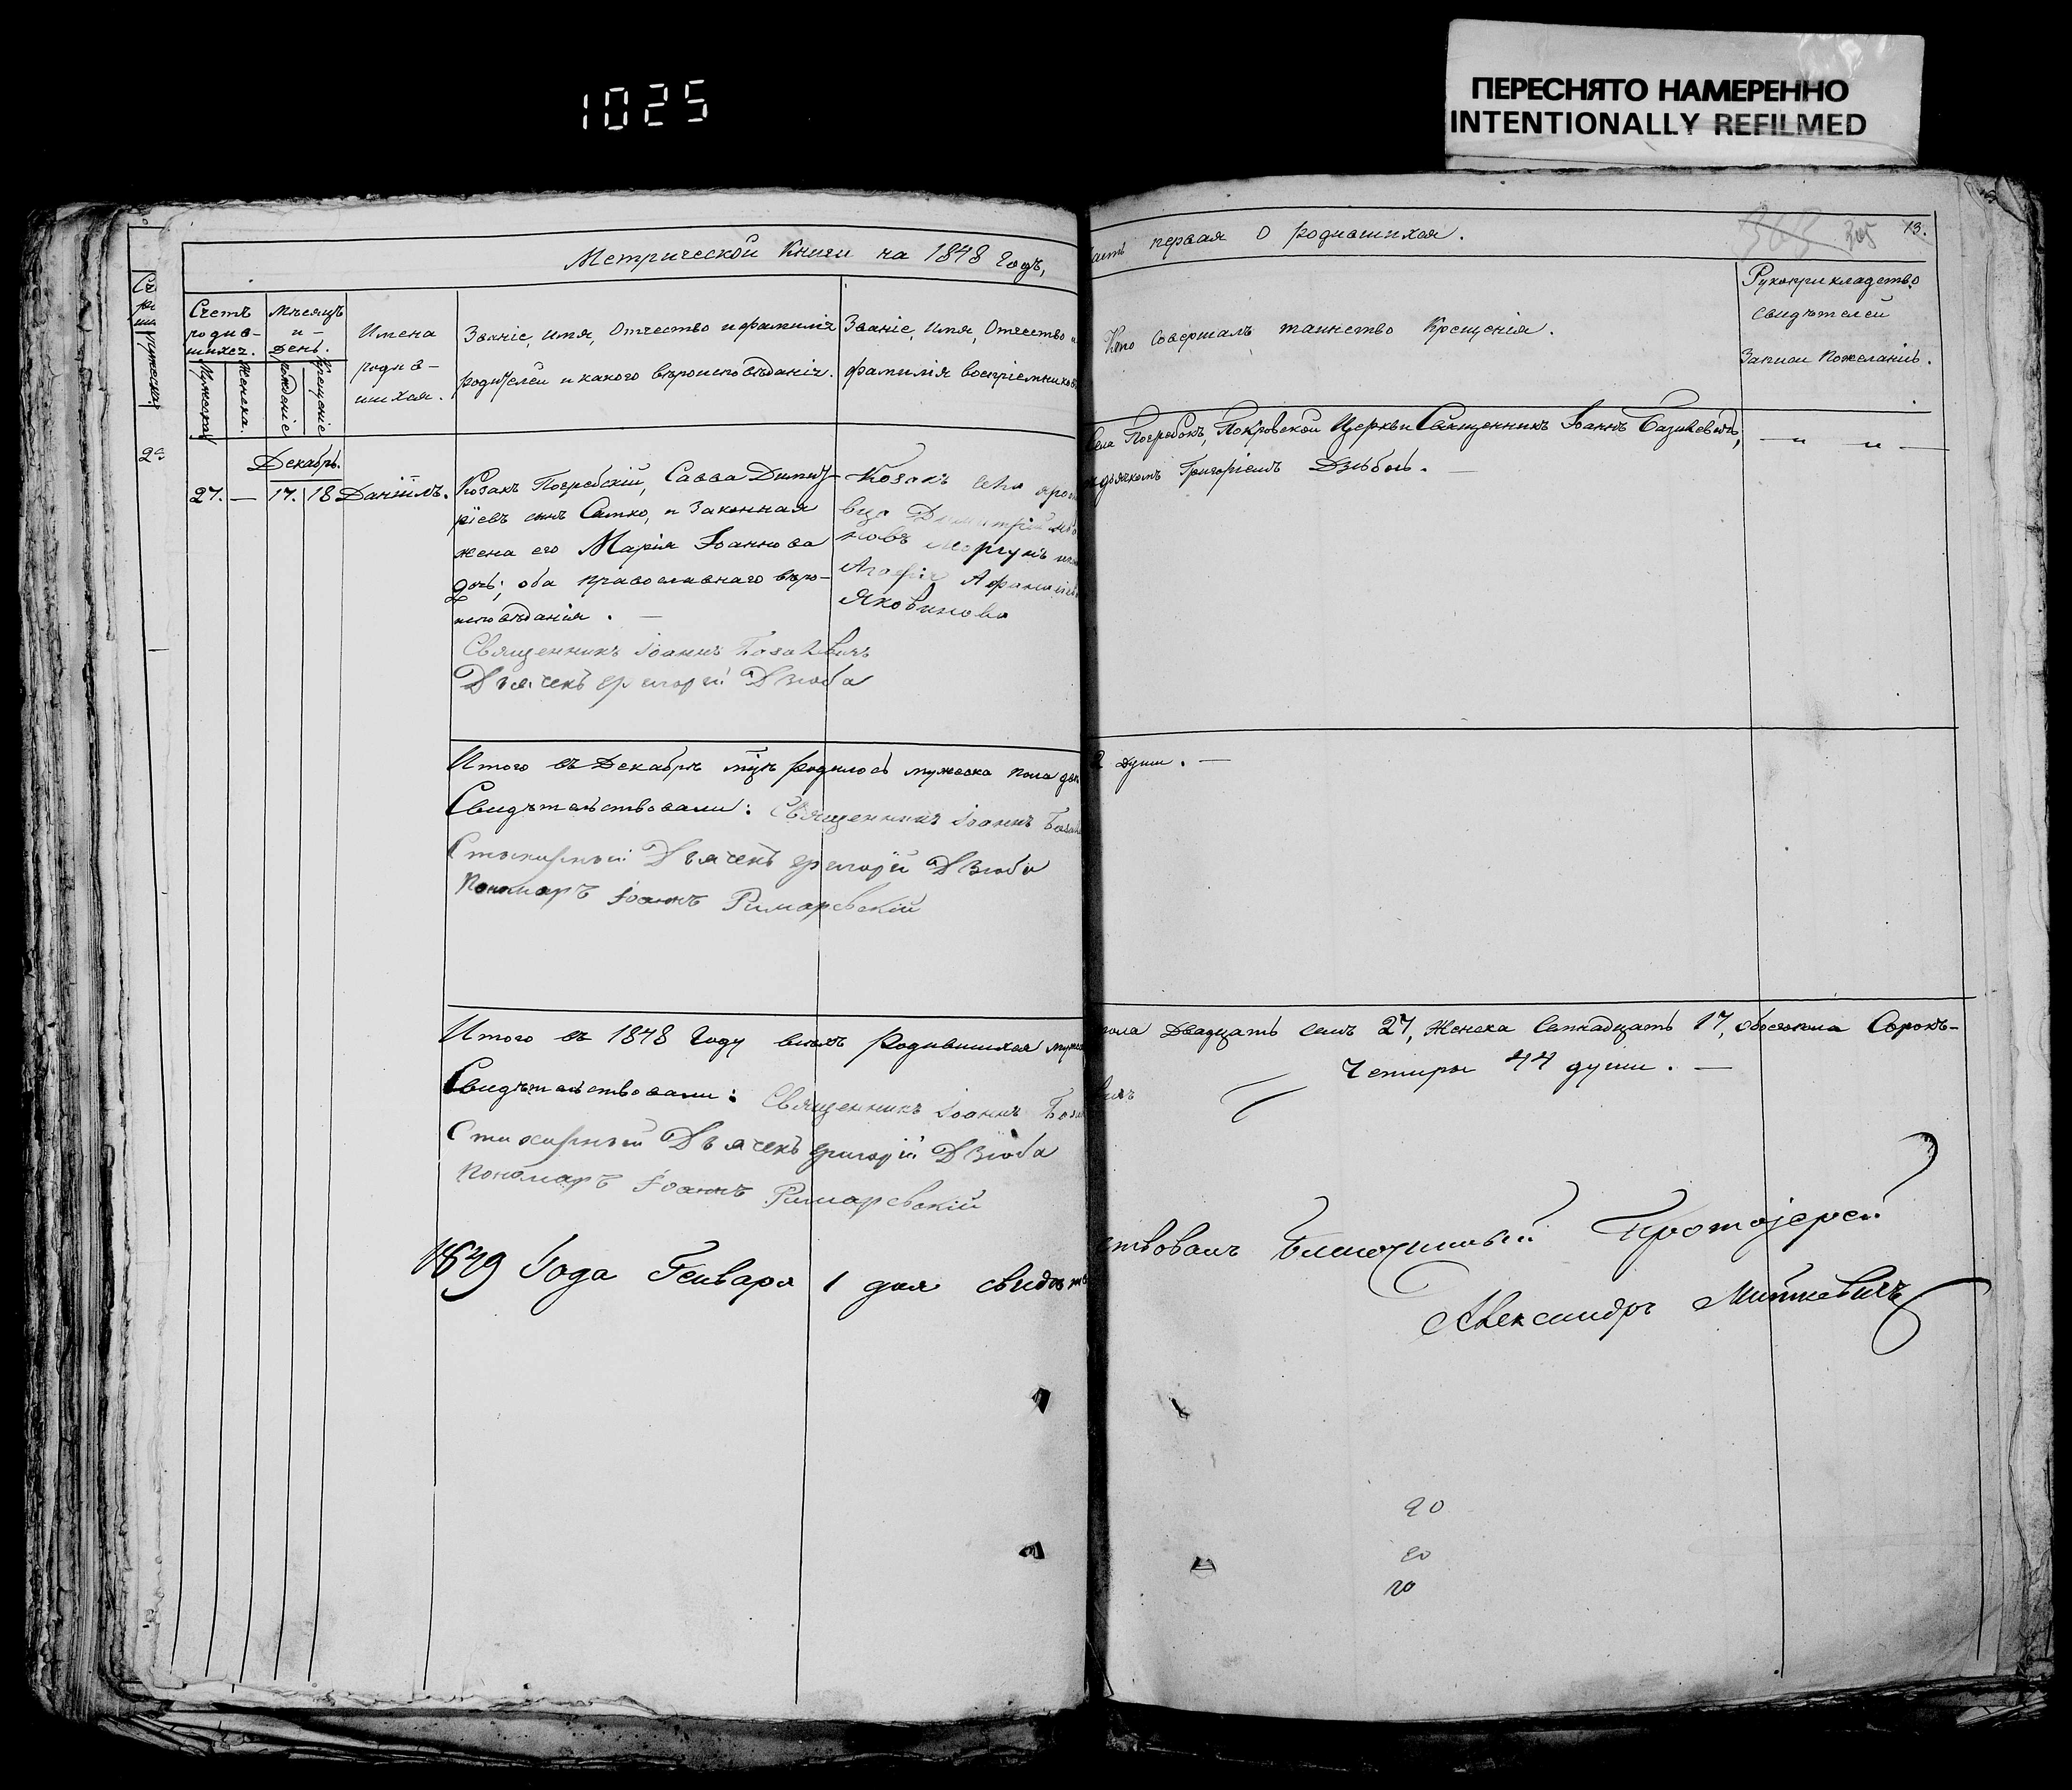 1025
ПЕРЕСНЯТО НАМЕРЕННО
INTENTIONALLY REFILMED
Метрической Книги на 1848 Годъ,
первая О родившихся.
365
13.
Счетъ родив-шихся.
Мужеска
Женска.
Мѣсяцъ и день.
Рожденіе
Крещеніе
Имена родив-шихся.
Званіе, Имя, Отчество и фамилія
родителей и какого вѣроисповѣданія.
Званіе, Имя, Отчество и
фамилія воспріемниковъ
Кто Совершалъ таинство Крещенія.
Рукоприкладство
свидѣтелей
Записи По желанію.
Декабрь.
27. — 17. 18 Даніилъ.
Козакъ Погребскій, Савва Димит-
ріевъ сынъ Сытко, и Законная
жена его Марія Іоаннова
дочь; оба православнаго вѣро-
исповѣданія. —
Козакъ села
Димитрій
новъ Моргунъ
Агафія Афанасіева
Яковинова
Села Погребокъ, Покровской Церкви Священникъ Іоаннъ Базилевичъ,
дьячкомъ Григоріемъ Дзюбою. —
— " — " —
Священникъ Іоаннъ Базилевичъ
Дьячекъ Григорій Дзюба
Итого въ Декабрѣ м-цѣ родилось мужеска пола двѣ
2 души. —
Свидѣтельствовали: Священникъ Іоаннъ
Стихарный Дьячекъ Григорій Дзюба
Пономарь Іоаннъ Римаревскій
Итого въ 1848 Году всѣхъ Родившихся
пола Двадцать семъ 27, Женска Семнадцать 17, обоего пола Сорокъ-
Четыры 44 души. —
Свидѣтельствовали: Священникъ Іоаннъ
Стихарный Дьячекъ Григорій Дзюба
Пономарь Іоаннъ Римаревскій
1849 Года Генваря 1 дня свидѣтель
ствовалъ Благочинный Протоіерей
Александръ Миткевичъ
20
20
20